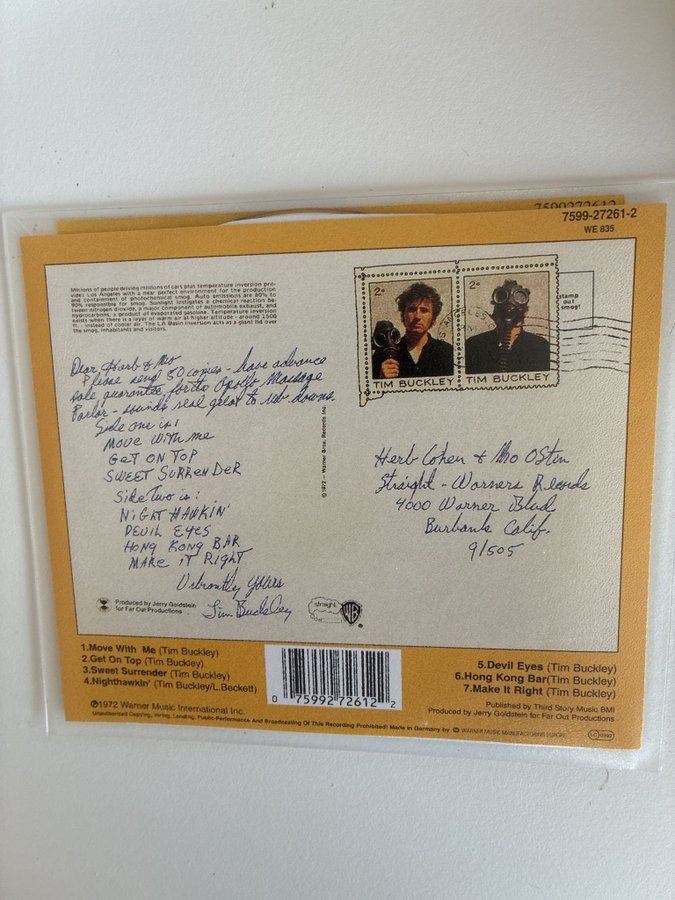 7599272612
7599-27261-2
WE 835
Millions of people driving millions of cars plus temperature inversion pro-
vides Los Angeles with a near perfect environment for the production
and containment of photochemical smog. Auto emissions are 80% to
90% responsible for smog. Sunlight instigates a chemical reaction be-
tween nitrogen dioxide, a major component of automobile exhaust, and
hydrocarbons, a product of evaporated gasoline. Temperature inversion
exists when there is a layer of warm air at higher altitude - around 1500
ft. - instead of cooler air. The LA Basin inversion acts as a giant lid over
the smog, inhabitants and visitors.
2c
2c
TIM BUCKLEY
TIM BUCKLEY
stamp
out
smog!
Dear Herb & Mo
Please send 50 copies - have advance
sale guarantee for the Apollo Massage
Parlor - sounds real great to rub downs.
Side one is:
MOVE WITH ME
GET ON TOP
SWEET SURRENDER
Side two is:
NIGHTHAWKIN'
DEVIL EYES
HONG KONG BAR
MAKE IT RIGHT
Vibrantly Yours
Tim Buckley
Produced by Jerry Goldstein
for Far Out Productions
© 1972 - Warner Bros. Records Inc
Herb Cohen & Mo Ostin
Straight - Warners Records
4000 Warner Blvd
Burbank Calif.
91505
straight
WB
1.Move With Me (Tim Buckley)
2.Get On Top (Tim Buckley)
3.Sweet Surrender (Tim Buckley)
4.Nighthawkin' (Tim Buckley/L.Beckett)
0 75992 72612 2
5.Devil Eyes (Tim Buckley)
6.Hong Kong Bar(Tim Buckley)
7.Make It Right (Tim Buckley)
Published by Third Story Music BMI
Produced by Jerry Goldstein for Far Out Productions
℗1972 Warner Music International Inc.
Unauthorised Copying, Hiring, Lending, Public-Performance And Broadcasting Of This Recording Prohibited! Made in Germany by WARNER MUSIC MANUFACTURING EUROPE